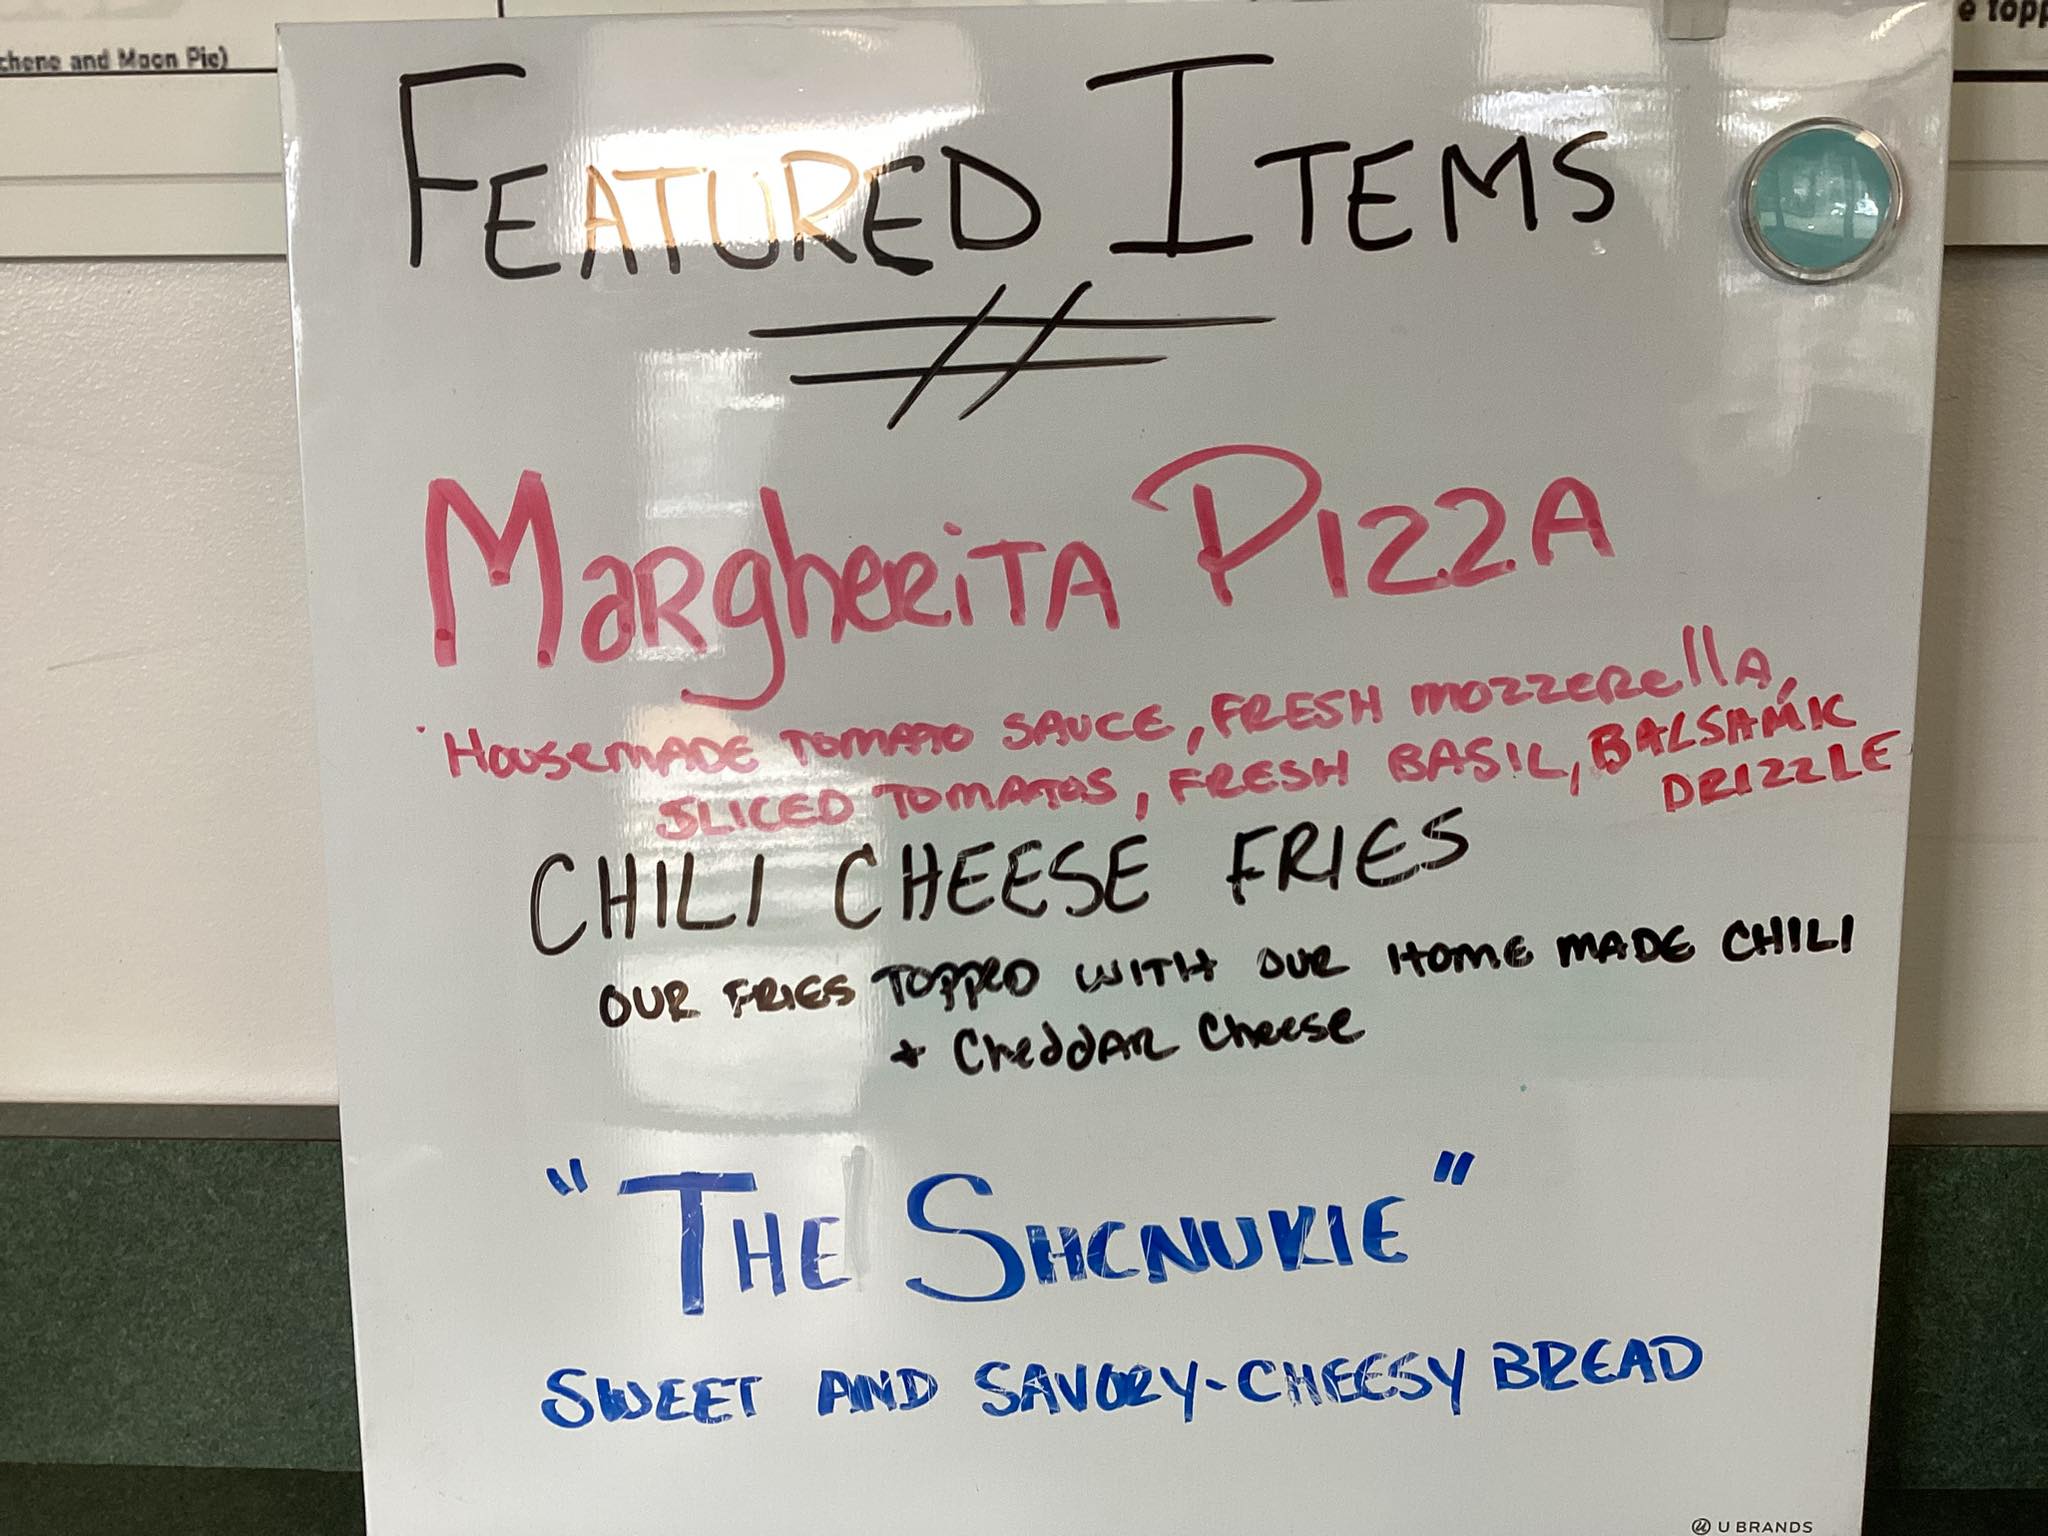 chene and Moon Pie)
e topp
FEATURED ITEMS
MARgheRiTA PIZZA
HOUSEMADE TOMATO SAUCE, FRESH MOZZERELLA,
SLICED TOMATOS, FRESH BASIL, BALSHMIK
DRIZZLE
CHILI CHEESE FRIES
OUR FRIES TOPPED WITH OUR HOME MADE CHILI
+ CheddAR Cheese
"THE SHCNUKIE"
SWEET AND SAVORY-CHEESY BREAD
U BRANDS